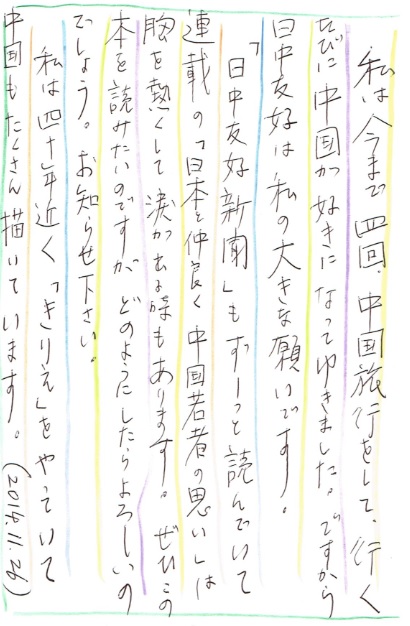 私は今まで四回、中国旅行をして、行く
たびに中国が好きになってゆきました。ですから
日中友好は私の大きな願いです。
「日中友好新聞」もずーっと読んでいて
連載の「日本と仲良く中国若者の思い」は
胸を熱くして涙が出る時もあります。ぜひこの
本を読みたいのですが、どのようにしたらよろしいの
でしょう。お知らせ下さい。
私は四十年近く「きりえ」をやっていて
中国もたくさん描いています。(2016.11.26)